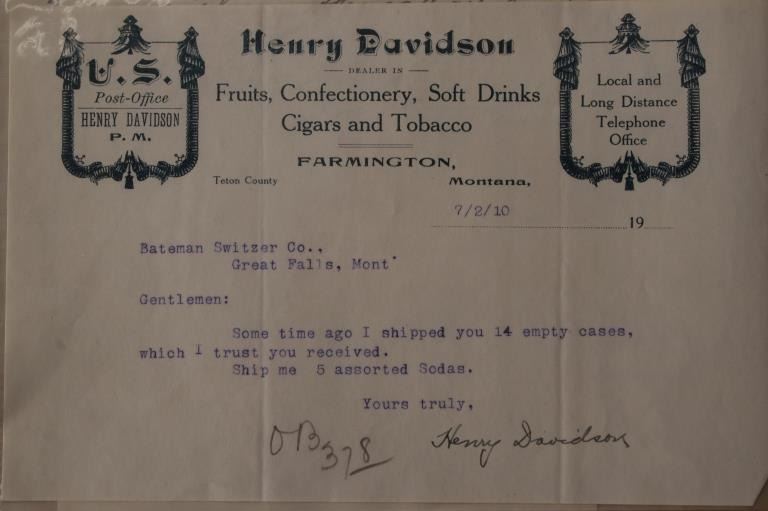 U.S.
Post-Office
HENRY DAVIDSON
P. M.
Henry Davidson
DEALER IN
Fruits, Confectionery, Soft Drinks
Cigars and Tobacco
FARMINGTON,
Teton County Montana,
Local and
Long Distance
Telephone
Office
7/2/10 19
Bateman Switzer Co.,
Great Falls, Mont
Gentlemen:
Some time ago I shipped you 14 empty cases,
which I trust you received.
Ship me 5 assorted Sodas.
Yours truly,
OB 378
Henry Davidson